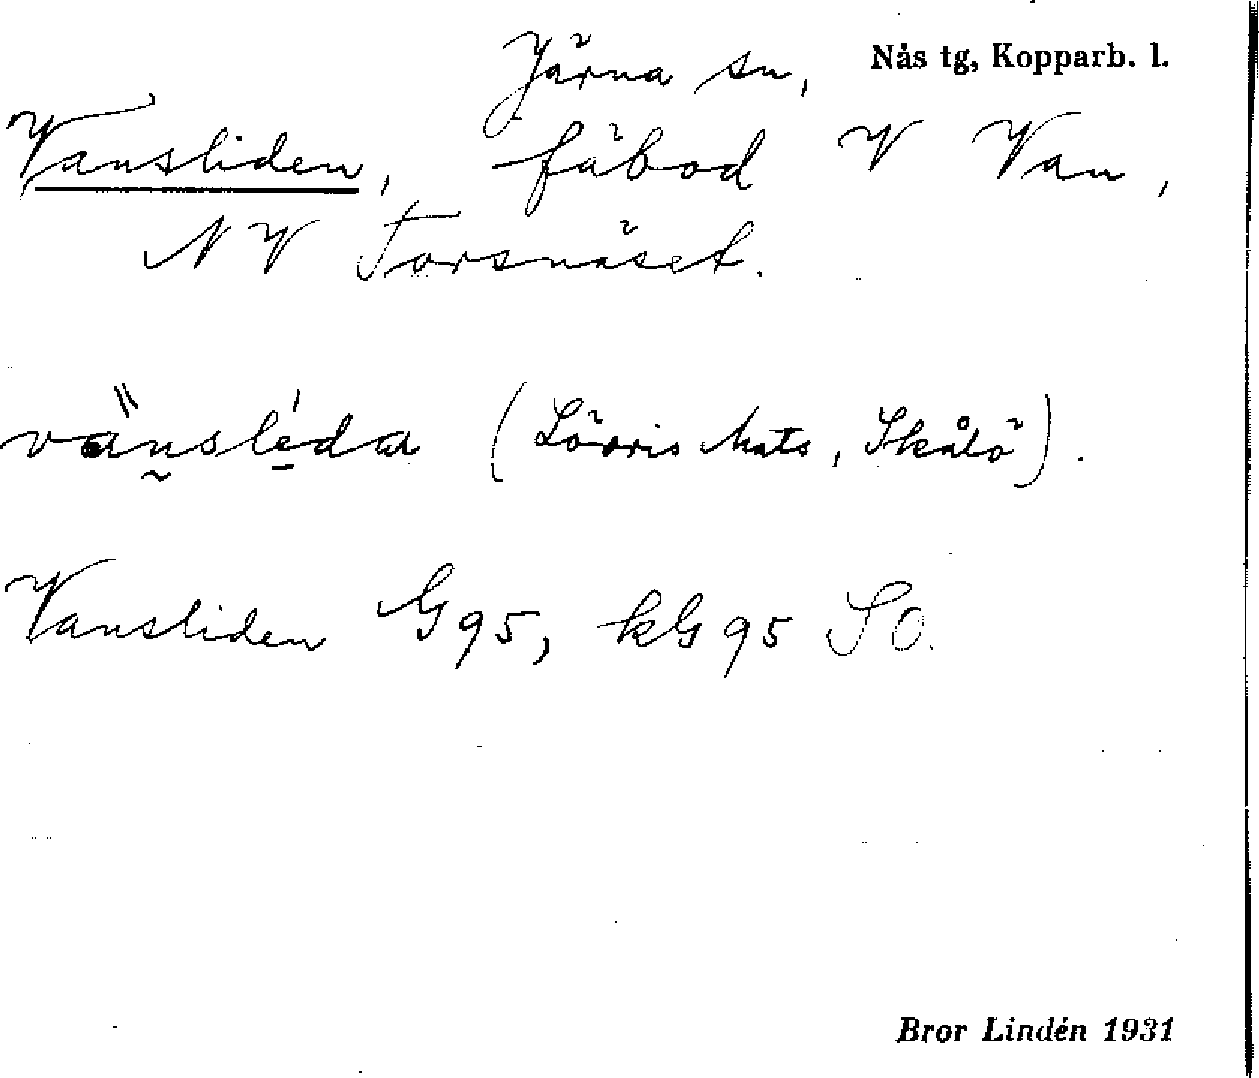 Järna sn, Nås tg, Kopparb. l.
Vansliden, fäbod V Van,
NV Torsnäset.
vänsleda (Lörris Mats, Skålö).
Vansliden G95, kG95 SO.
Bror Lindén 1931